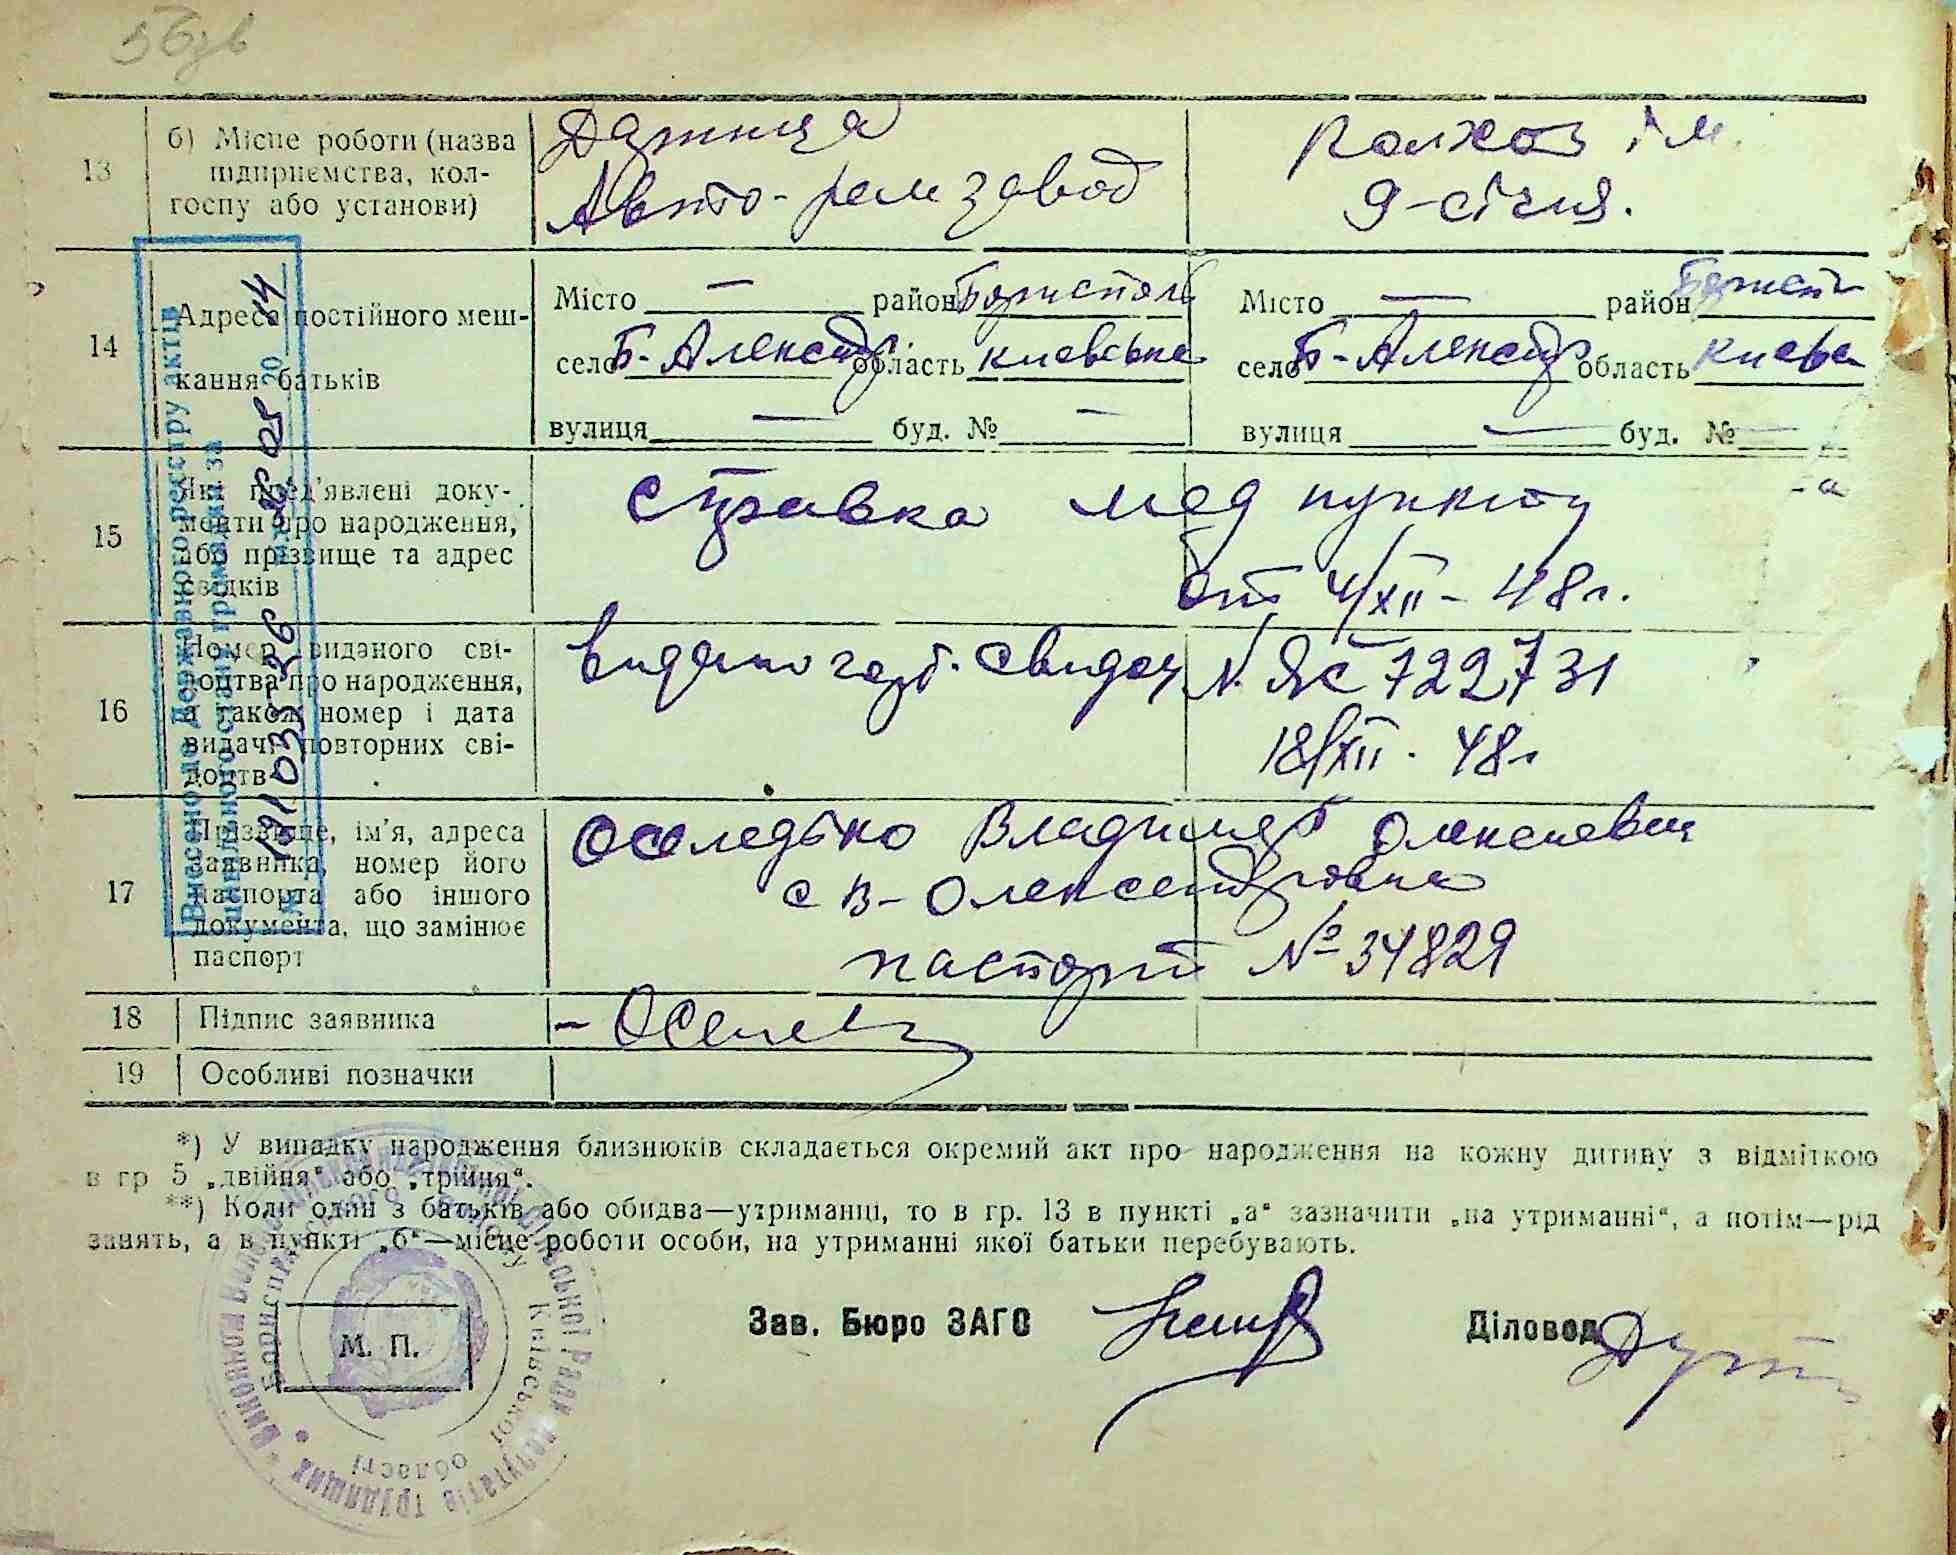 13
б) Місце роботи (назва
підприємства, кол-
госпу або установи)
Дарниця
Авто-рем завод
Колхоз ім.
9-січня.
14
Адреса постійного меш-
кання батьків
Місто — район Бориспол
село Б-Александр. область киевська
вулиця — буд. № —
Місто — район Борисп
село Б-Александр область Києвс
вулиця — буд. № —
15
Які пред'явлені доку-
менти про народження,
або прізвище та адрес
свідків
справка мед пункту
от 4/XII - 48 г.
16
Номер виданого сві-
доцтва про народження,
а також номер і дата
видачі повторних сві-
доцтв
видано свидоц N. ЯС 722731
18/XII - 48 г
17
Прізвище, ім'я, адреса
заявника, номер його
паспорта або іншого
документа, що замінює
паспорт
Оселедько Владимер Олексиевич
с В-Олександровка
паспорт № 34829
18
Підпис заявника
- Оселе
19
Особливі позначки
*) У випадку народження близнюків складається окремий акт про народження на кожну дитину з відміткою
в гр 5 „двійня“ або „трійня“.
**) Коли один з батьків або обидва—утриманці, то в гр. 13 в пункті „а“ зазначити „на утриманні“, а потім—рід
занять, а в пункті „б“—місце роботи особи, на утриманні якої батьки перебувають.
Зав. Бюро ЗАГС
Діловод
М. П.
Внесено до Державного реєстру актів
цивільного стану громадян за
Київської області
депутатів трудящих